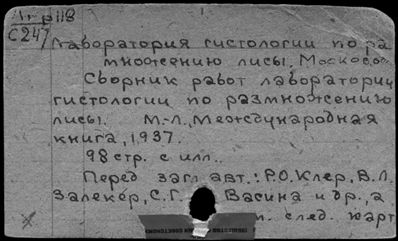 р 118
С 247
Лаборатория гистологии по ра
множению лисы, Москов
Сборник работ лаборатории
гистологии по размножению
лисы. М.-Л., Международная
книга, 1937.
98 стр. с илл.
Перед загл. авт.: Р.О. Клер, В.Л.
Залекер, С.Г. Васина и др., а
след. карт